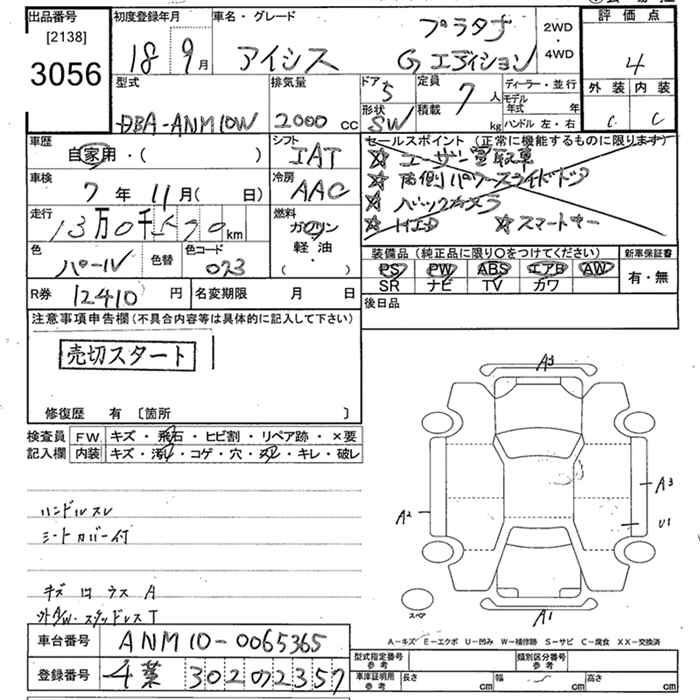 出品番号
[2138]
3056
初度登録年月
18 9月
車名・グレード
アイシス
プラタナ
Gエディション
2WD
・
4WD
評価点
4
外装 内装
C C
型式
DBA-ANM10W
排気量
2000 cc
ドア 5
形状 SW
定員 7 人
積載 kg
ディーラー・並行
モデル年式 年
ハンドル 左・右
車歴
自家用・( )
シフト
IAT
車検
7年 11月( 日)
冷房
AAC
走行
13万0千570km
燃料
ガソリン
軽油
( ・ )
色
パール
色替
色コード
073
R券 12410円
名変期限 月 日
セールスポイント (正常に機能するものに限ります)
☆ ユーザー買取車
☆ 両側パワースライドドア
☆ バックカメラ
☆ HID ☆ スマートキー
装備品 (純正品に限り〇をつけてください)
PS PW ABS エアB AW
SR ナビ TV カワ
新車保証書
有・無
後日品
注意事項申告欄 (不具合内容等は具体的に記入して下さい)
売切スタート
修復歴 有 〔箇所 〕
検査員記入欄
FW キズ・飛石・ヒビ割・リペア跡・×要
内装 キズ・汚れ・コゲ・穴・スレ・キレ・破レ
ハンドルスレ
シートカバー付
キズ ロ ラス A
外AW・スタッドレスT
A3
A2
A3
U1
A1
スペア
A-キズ E-エクボ U-凹み W-補修跡 S-サビ C-腐食 XX-交換済
車台番号 ANM10-0065365
登録番号 千葉 302の2357
型式指定番号 参考
類別区分番号 参考
車庫証明用 参考 長さ cm 幅 cm 高さ cm